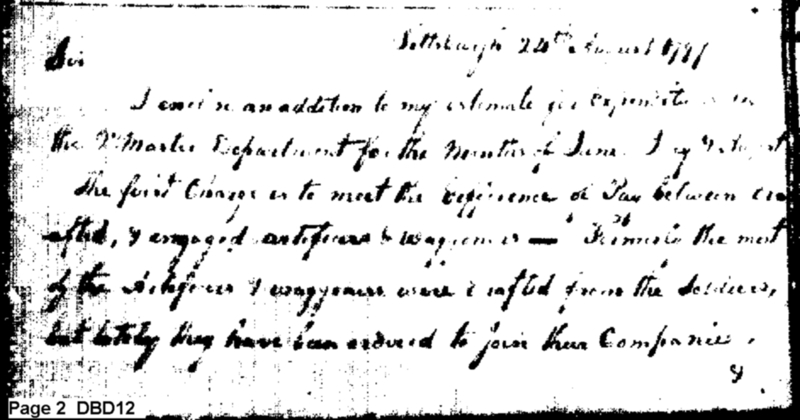 Pittsburgh 24th August 1797
Sir
I enclose an addition to my estimate for expenditures in
the Qr Master Department for the Months of June July & August
The first Charge is to meet the difference of Pay between dra
afted, & engaged artificers & waggoners — Formerly the most
of the Artificers & waggoners were drafted from the Soldiers,
but lately they have been ordered to join their Companies,
&
Page 2 DBD12